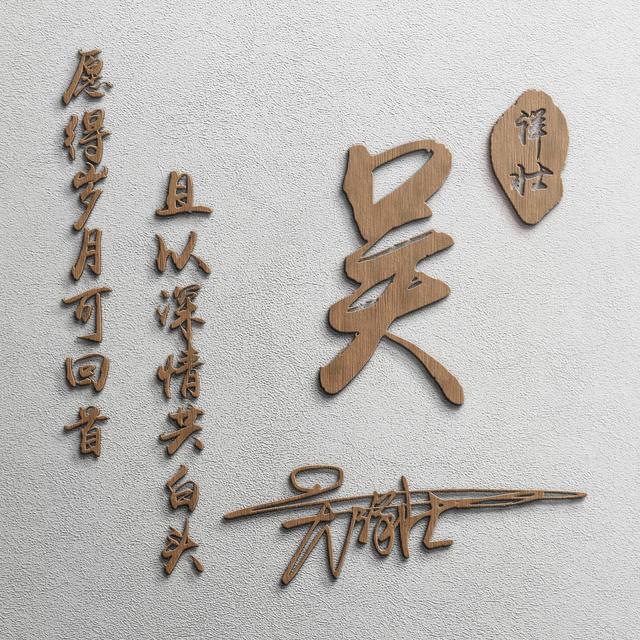 愿得岁月可回首
且以深情共白头
吴
详壮